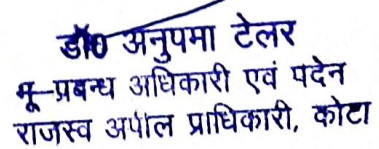 डॉ0 अनुपमा टेलर
भू–प्रबन्ध अधिकारी एवं पदेन
राजस्व अपील प्राधिकारी, कोटा